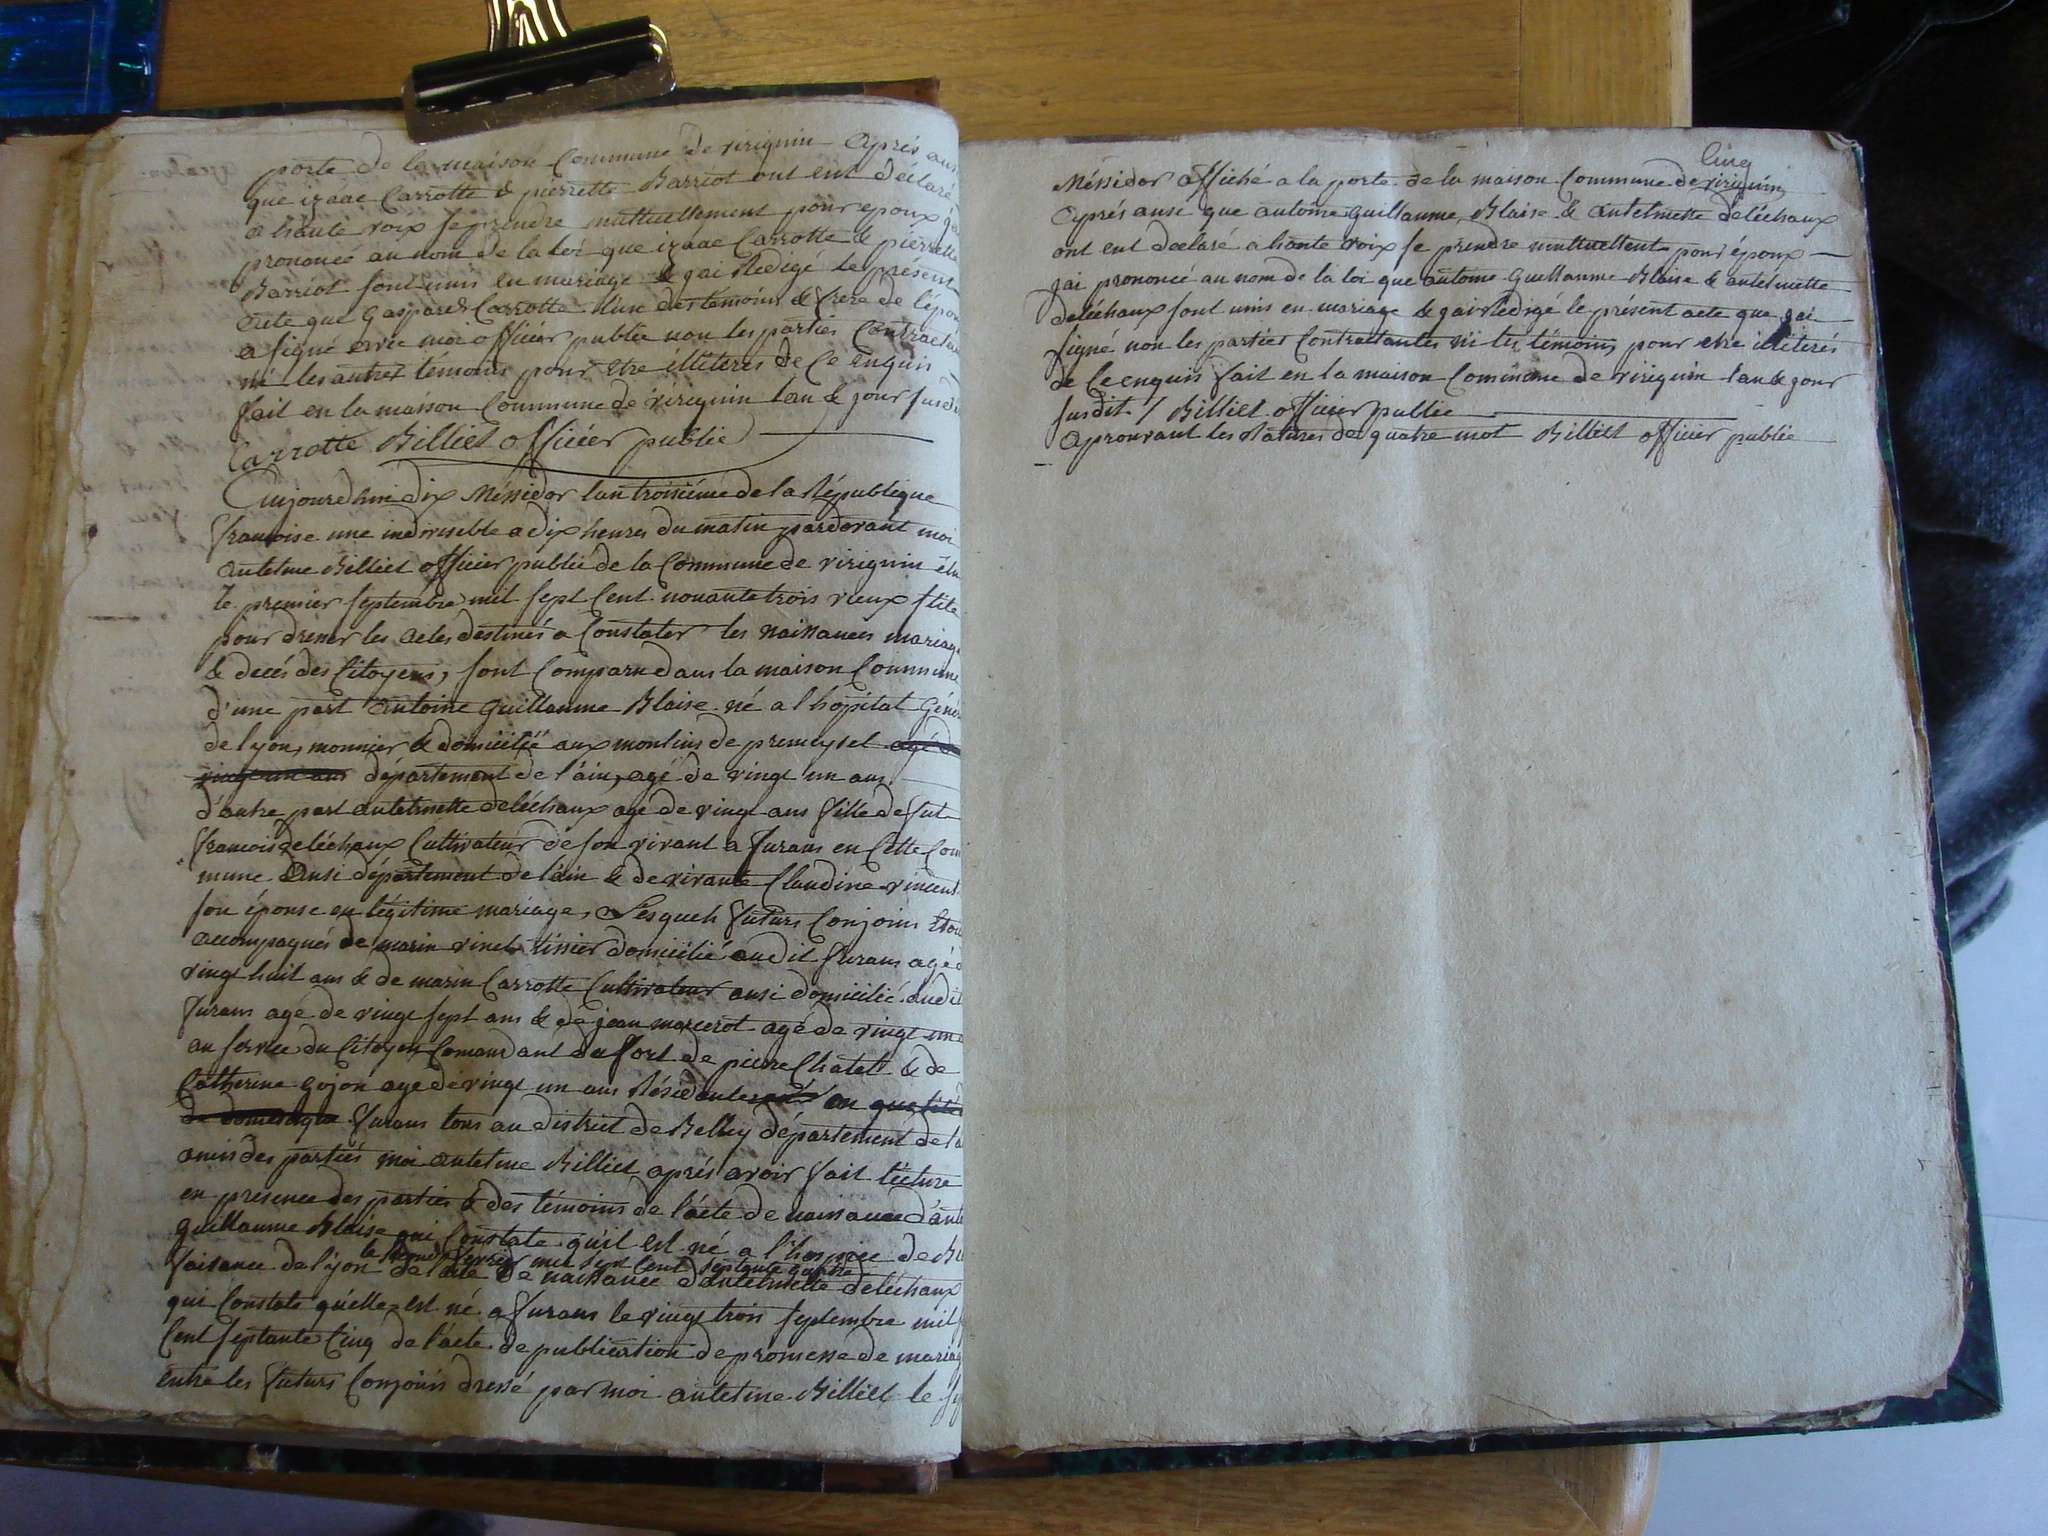 porte de la maison Commune de virignin Aprés ausi
que izaac Carrotte & pierrette Barriot ont eut déclaré
a haute voix se prendre muttuellement pour epoux jai
prononcé au nom de la loi que izaac Carrotte & pierrette
Barriot sont unis en mariage & jai Rédigé le présent
acte que Gaspared Carrotte l'un des temoins & frere de l'épou
a signé avec moi officier public non les parties Contractan
ni les autres témoins pour etre illiteres de Ce enquis
fait en la maison Commune de virignin lan & jour susdi
Carrotte Billiet officier public
Aujourdhui dix Méssidor lan troisiéme de la République
francoise une indivisible a dix heures du matin pardevant moi
antelme Billiet officier public de la Commune de virignin élu
le premier septembre mil sept Cent nonante trois vieux stile
pour dresser les actes destinés a Constater les naissances mariage
& decés des Citoyens, sont Comparu dans la maison Commune
d'une part antoine guillaume Blaise né a l'hopital Géné
de lyon, monnier & domicilié aux moulins de premeysel agé de
vingt un ans département de l'ain, agé de vingt un ans
d'autre part antelmette deléchaux agé de vingt ans fille de fut
francois deléchaux Cultivateur de son vivant a furans en Cette Com
mune Ausi département de l'ain & de vivante Claudine vincent
son éponse en légitime mariage, Lesquels futurs Conjoins étou
accompagnés de marin vinet tissier domicilié audit furans agé d
vingt huit ans & de marin Carrotte Cultivateur ausi domicilié audit
furans agé de vingt sept ans & de jean marcerot agé de vingt un a
au service du Citoyen Comandant du fort de pierre Chatel & de
Catherine gojon age de vingt un ans Résidente en qualité
de domestique furans tous au district de Belley département de la
amis des partiés moi antelme Billiet aprés avoir fait lécture
en presence des parties & des témoins de l'acte de naissance d'anto
guillaume Blaise qui Constate qu'il est né a l'hospice de Bi
le segond fevrier mil sept Cent septante quatre
faisance de lyon de l'acte de naissance d'antelmette deléchaux
qui Constate qu'elle est né a furans le vingt trois septembre mil s
Cent septante Cinq de l'acte de publication de promesse de mariag
entre les futurs Conjoins dressé par moi antelme Billiet le
Cinq
Méssidor affiché a la porte de la maison Commune de virignin
Aprés ausi que antoine guillaume Blaise & antelmette deléchaux
ont eut declaré a haute voix se prendre muttuellent pour époux
jai prononcé au nom de la loi que antoine guillaume Blaise & antelmette
deléchaux sont unis en mariage & jai Rédigé le présent acte que jai
signé non les parties Contraitantes ni les témoins pour etre illiterés
de Ce enquis fait en la maison Commune de virignin lan & jour
susdit / Billiet officier public
aprouvant les Ratures de quatre mot Billiet officier public